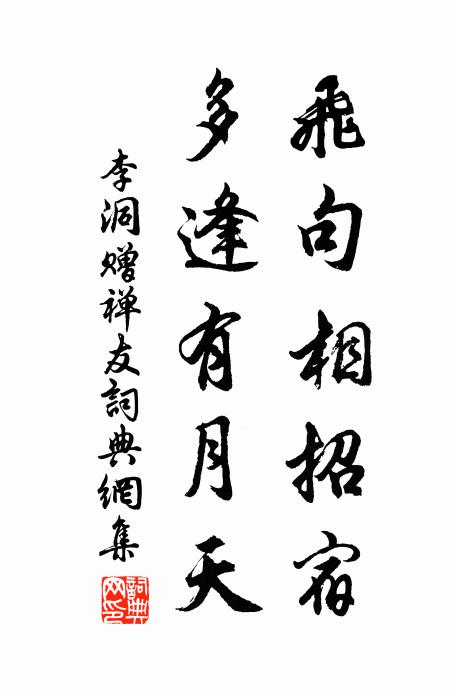 飛句相招宿
多逢有月天
李洞贈禅友詞典網集
詞典网印